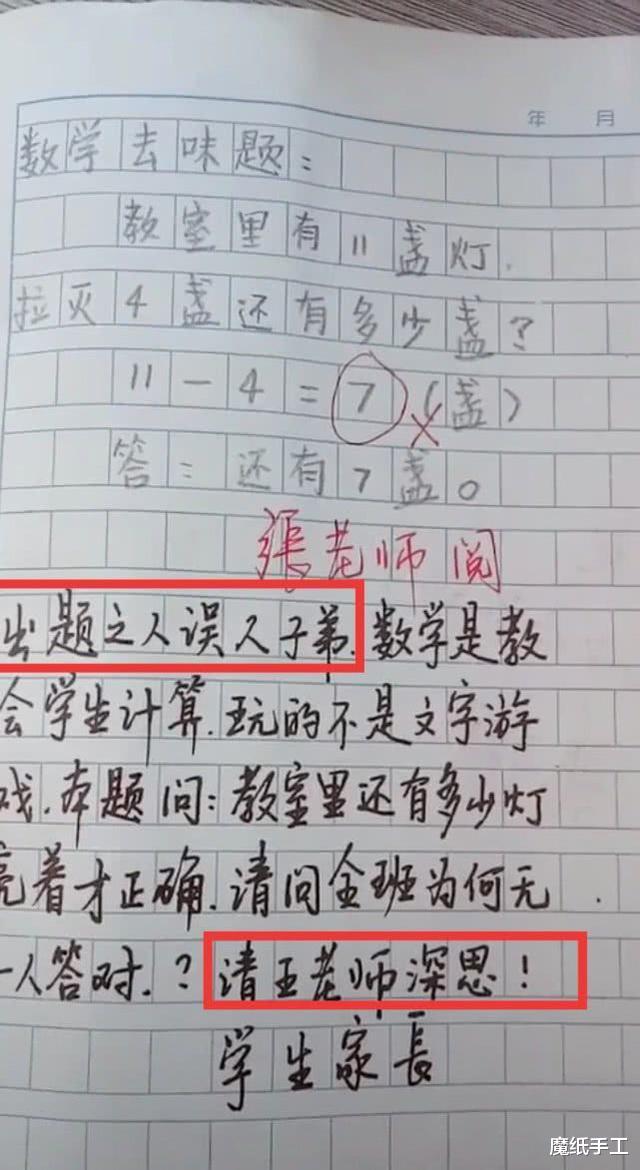 年 月
数学去味题：
教室里有11盏灯.
拉灭4盏还有多少盏？
11－4＝7（盏）
答：还有7盏。
張老师阅
出题之人误人子弟.数学是教
会学生计算.玩的不是文字游
戏.本题问:教室里还有多少灯
亮着才正确.请问全班为何无
一人答对.？请王老师深思！
学生家長
魔纸手工